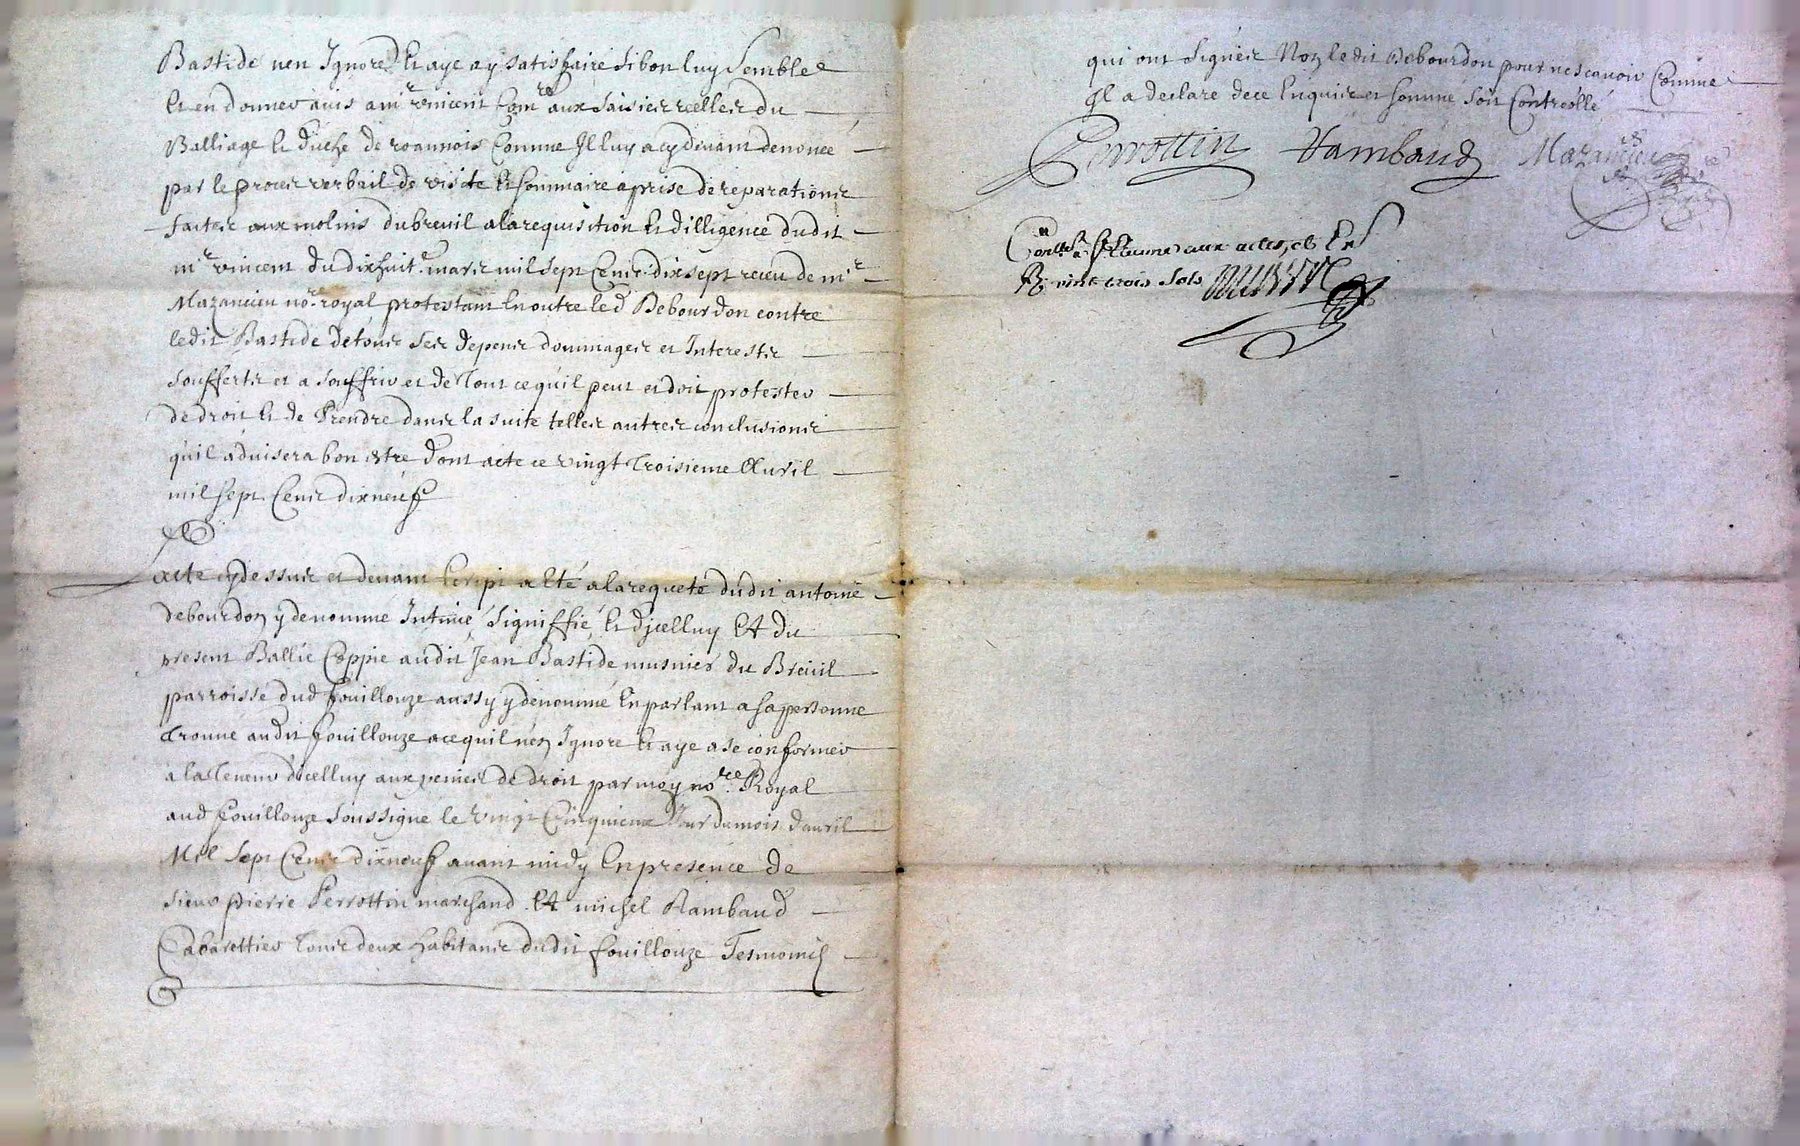 Bastide nen Ignore Et aye a y satisfaire si bon luy semble
Et en donner auis a mr vincent Comre aux saisies reelles du
Balliage Et duche de roannois Comme Il luy a cy deuant denoncé
par le proces verbail de visite Et sommaire aprise de reparations
faites aux molins du breuil a la requisition Et dilligence dudit
mr vincent du dix huite mars mil sept Cens dix sept receu de mre
Mazancieu nore royal protestant En outre led Debourdon contre
ledit Bastide de tous ses depens dommages et Interests
soufferts et a souffrir et de Tout ce quil peut et doit protester
de droit Et de Prendre dans la suite telles autres conclusions
quil aduisera bon estre dont acte ce vingt Troisieme Auril
mil sept Cens dix neuf
acte cy dessus et deuant Escript a Eté a la requete dudit antoine
debourdon y denommé Intimé Signiffié Et djcelluy Et du
present Ballié Coppie audit Jean Bastide musnier du Breuil
parroisse dud fouillouze aussy y denommé En parlant a sa personne
Trouué audit fouillouze a ce quil nen Ignore Et aye a se conformer
a la Teneur dicelluy aux peines de droit par moy nore Royal
aud fouillouze soussigne le vingt Cinquieme Jour du mois dauril
Mil Sept Cens dix neuf auant midy En presence de
sieur pierre Perrottin marchand Et michel Rambaud
Cabarettier Tous deux habitans dudit fouillouze Tesmoins
qui ont signés Non ledit Debourdon pour ne scauoir Comme
Il a declare de ce Enquis et somme soit Controllé
Perrottin Rambaud Mazancieu
Conllé a St Etienne aux actes, cb
R. vint trois sols